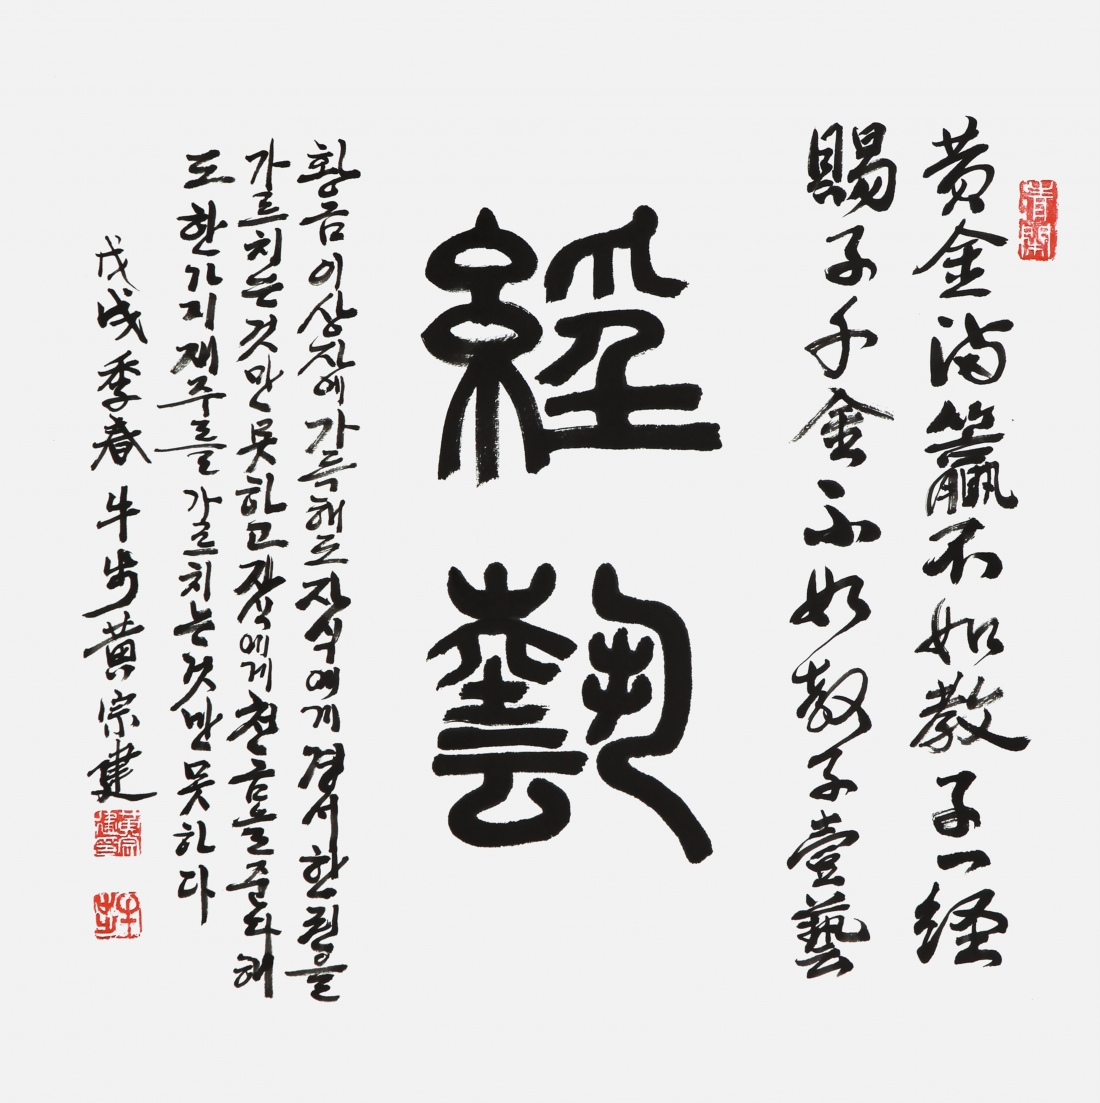 清閑
黃金滿籯不如教子一経
賜子千金不如教子壹藝
經藝
황금이 상자에 가득해도 자식에게 경서 한권을
가르치는 것만 못하고 자식에게 천금을 준다해
도 한가지 재주를 가르치는 것만 못하다
戊戌季春 牛步 黃宗建
黃宗建印
牛步